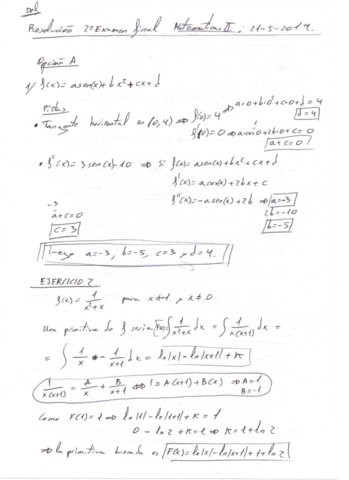 Resolución 2º Examen final Matemáticas II. 21-5-2019.
Opción A
1/ f(x) = a sen(x) + b x² + cx + d
Pistas
• Tangente horizontal en (0,4) ⇒ f(0) = 4 ⇒ a·0 + b·0² + c·0 + d = 4
d = 4
f'(0) = 0 ⇒ a·cos 0 + 2b·0 + c = 0
a + c = 0
• f''(x) = 3 sen(x) - 10 ⇒ Si f(x) = a sen(x) + bx² + cx + d
f'(x) = a cos(x) + 2bx + c
f''(x) = -a sen(x) + 2b ⇒ a = -3
-3
a + c = 0
2b = -10
c = 3
b = -5
Luego a = -3, b = -5, c = 3 y d = 4.
EJERCICIO 2.
f(x) = 1/(x²+x) para x ≠ -1 y x ≠ 0
Una primitiva de f sería F(x) = ∫ 1/(x²+x) dx = ∫ 1/(x(x+1)) dx =
= ∫ 1/x - 1/(x+1) dx = ln|x| - ln|x+1| + K
1/(x(x+1)) = A/x + B/(x+1) ⇔ 1 = A(x+1) + B(x) ⇒ A = 1
B = -1
Como F(1) = 1 ⇒ ln|1| - ln|1+1| + K = 1
0 - ln 2 + K = 1 ⇒ K = 1 + ln 2
⇒ la primitiva buscada es F(x) = ln|x| - ln|x+1| + 1 + ln 2